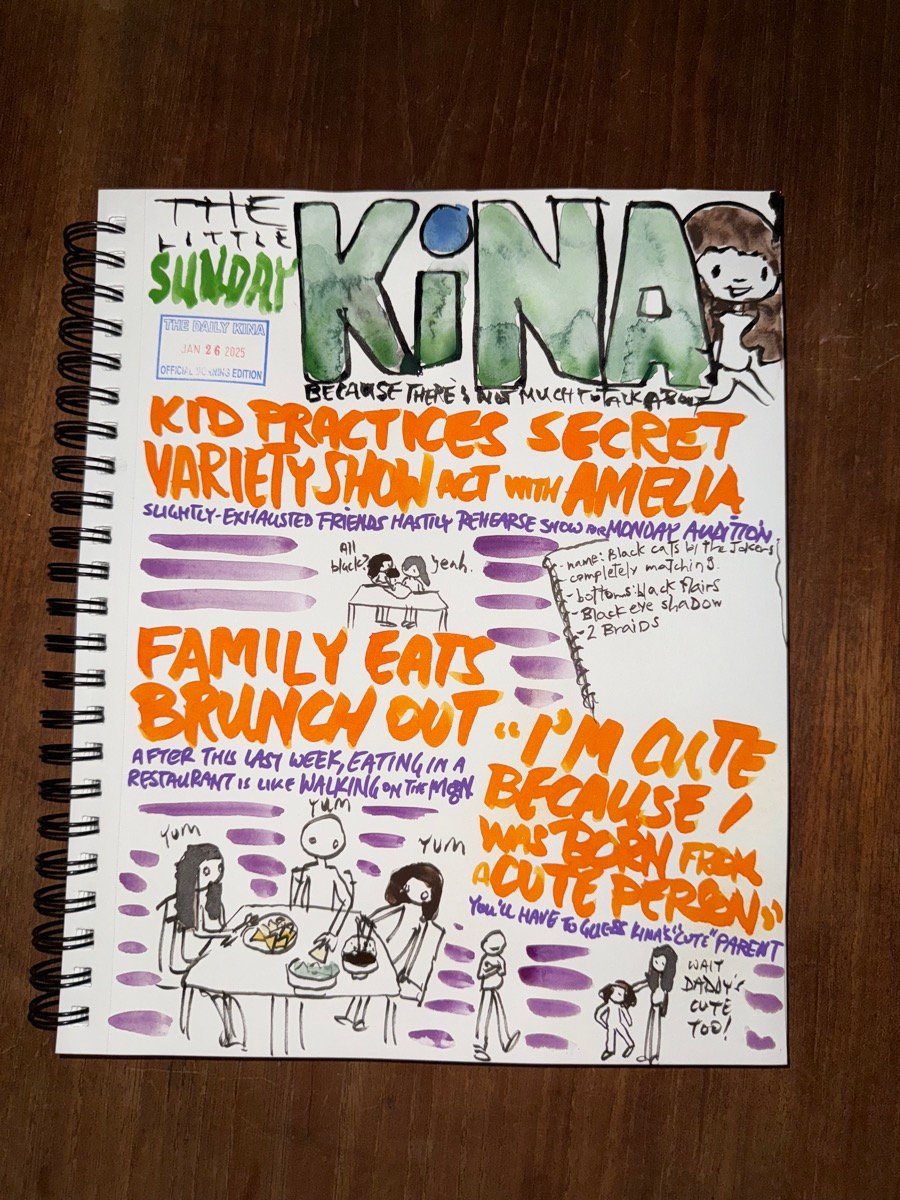 THE
LITTLE
SUNDAY
KiNA
THE DAILY KINA
JAN 26 2025
OFFICIAL MORNING EDITION
BECAUSE THERE'S NOT MUCH TO TALK ABOUT
KID PRACTICES SECRET
VARIETY SHOW ACT WITH AMELIA
SLIGHTLY-EXHAUSTED FRIENDS HASTILY REHEARSE SHOW FOR MONDAY AUDITION
All
black?
yeah.
- name: Black cats by the Jokers
- completely matching.
- bottoms: black flairs
- Black eye shadow
- 2 Braids
FAMILY EATS
BRUNCH OUT
AFTER THIS LAST WEEK, EATING IN A
RESTAURANT IS LIKE WALKING ON THE MOON
YUM
YUM
YUM
"I'M CUTE
BECAUSE I
WAS BORN FROM
A CUTE PERSON"
YOU'LL HAVE TO GUESS KINA'S "CUTE" PARENT
WAIT
DADDY'S
CUTE
TOO!